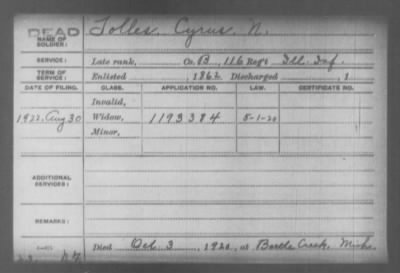 DEAD
NAME OF SOLDIER: Tolles, Cyrus N.
SERVICE: Late rank, Co. B, 116 Reg't Ill. Inf.
TERM OF SERVICE: Enlisted , 1862 Discharged , 1
DATE OF FILING. CLASS. APPLICATION NO. LAW. CERTIFICATE NO.
Invalid,
1922, Aug 30 Widow, 1193384 5-1-20
Minor,
ADDITIONAL SERVICES:
REMARKS:
Died Oct. 3, 1920, at Battle Creek, Mich.